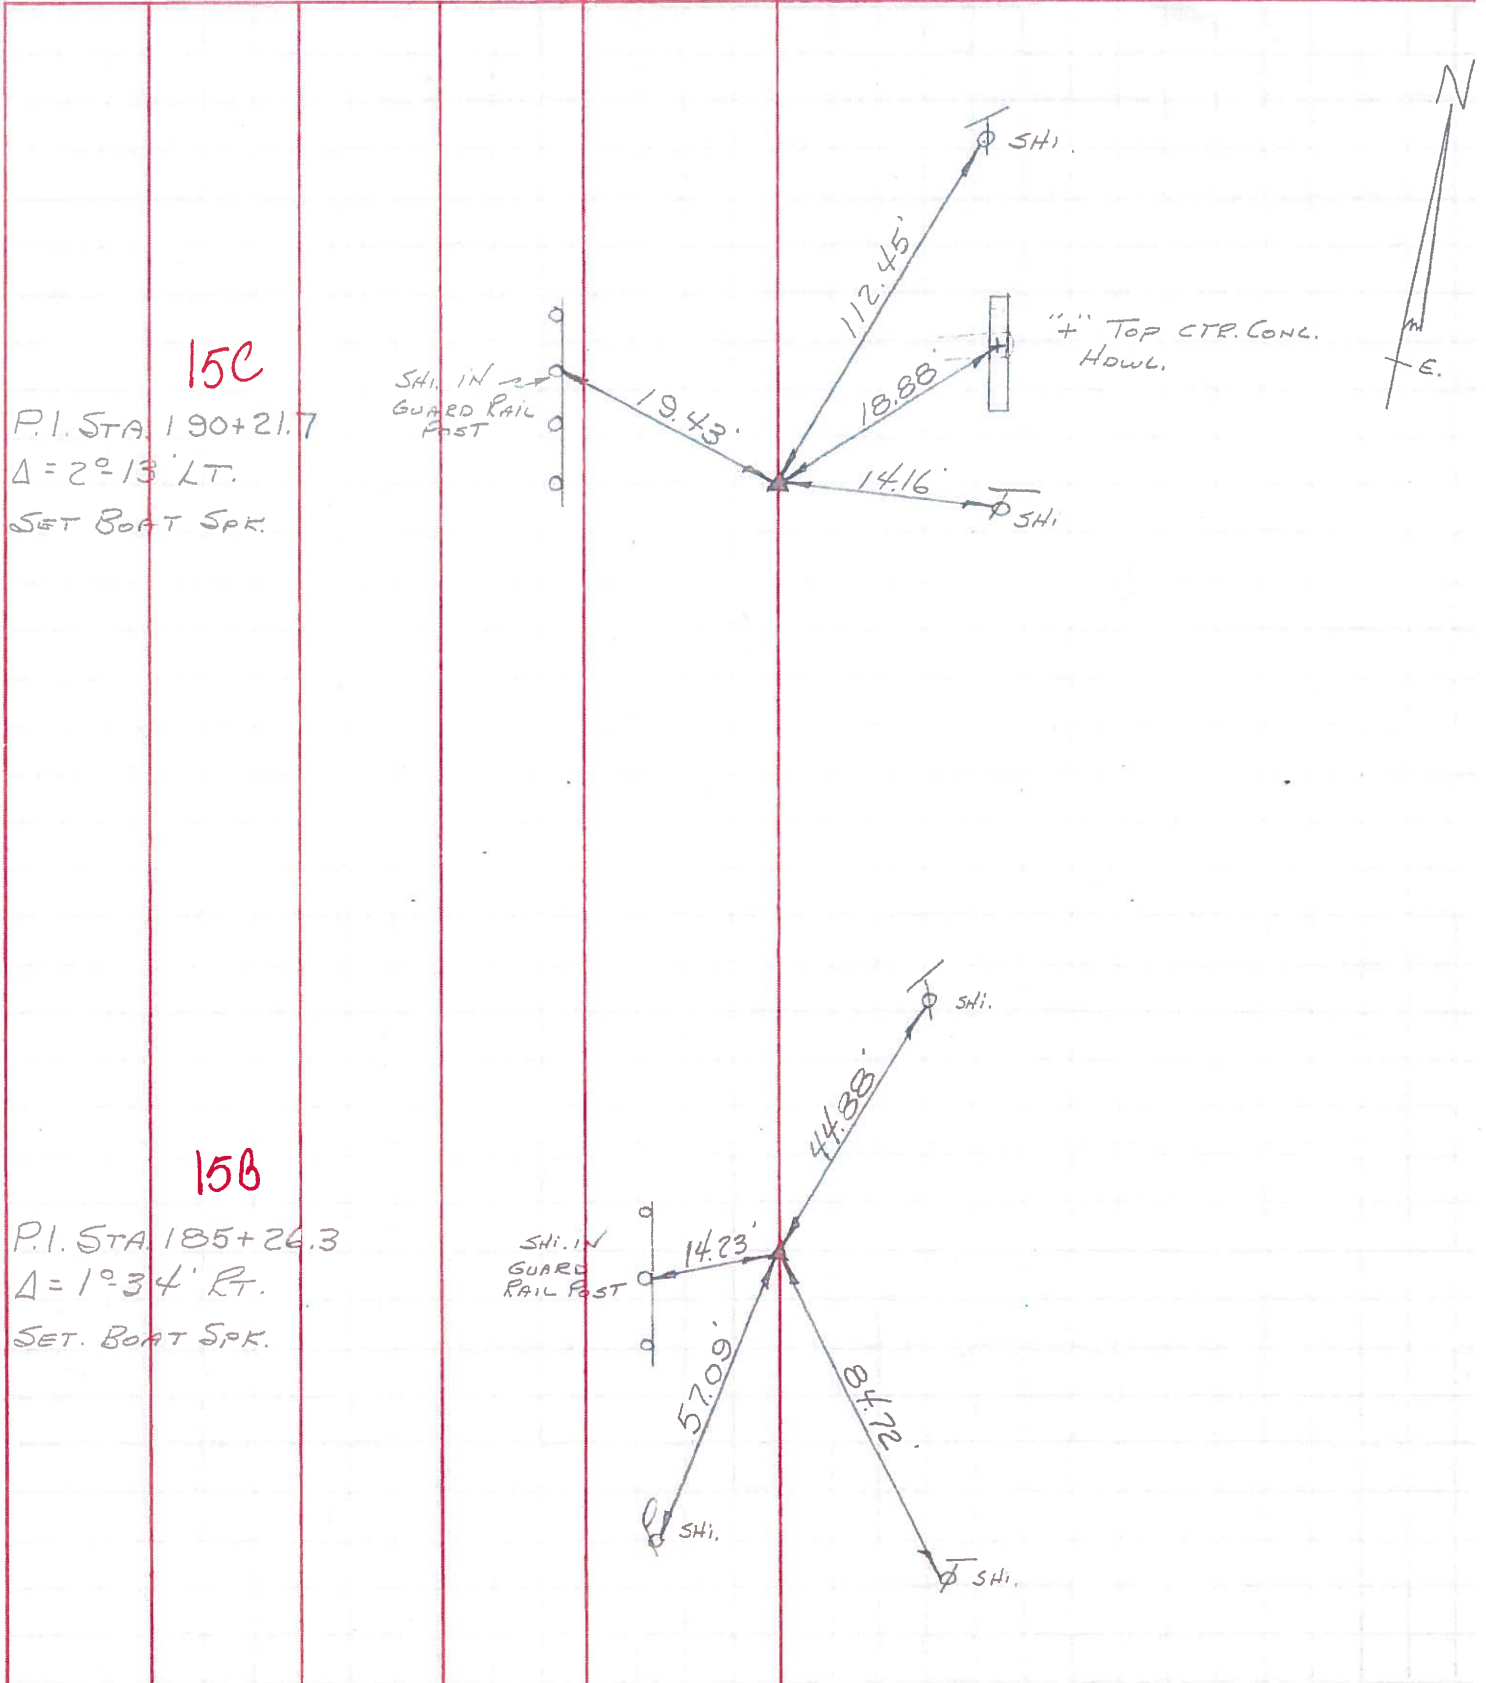 N
SHI.
112.45'
"+" TOP CTR. CONC.
HDWL.
E.
15C
SHI. IN
GUARD RAIL
POST
19.43'
18.88'
P.I. STA. 190+21.7
Δ = 2°-13' LT.
14.16'
SET BOAT SPK.
SHI
SHI.
44.88'
15B
P.I. STA. 185+26.3
Δ = 1°-34' RT.
SET. BOAT SPK.
SHI. IN
GUARD
RAIL POST
14.23'
57.09'
84.72'
SHI.
SHI.